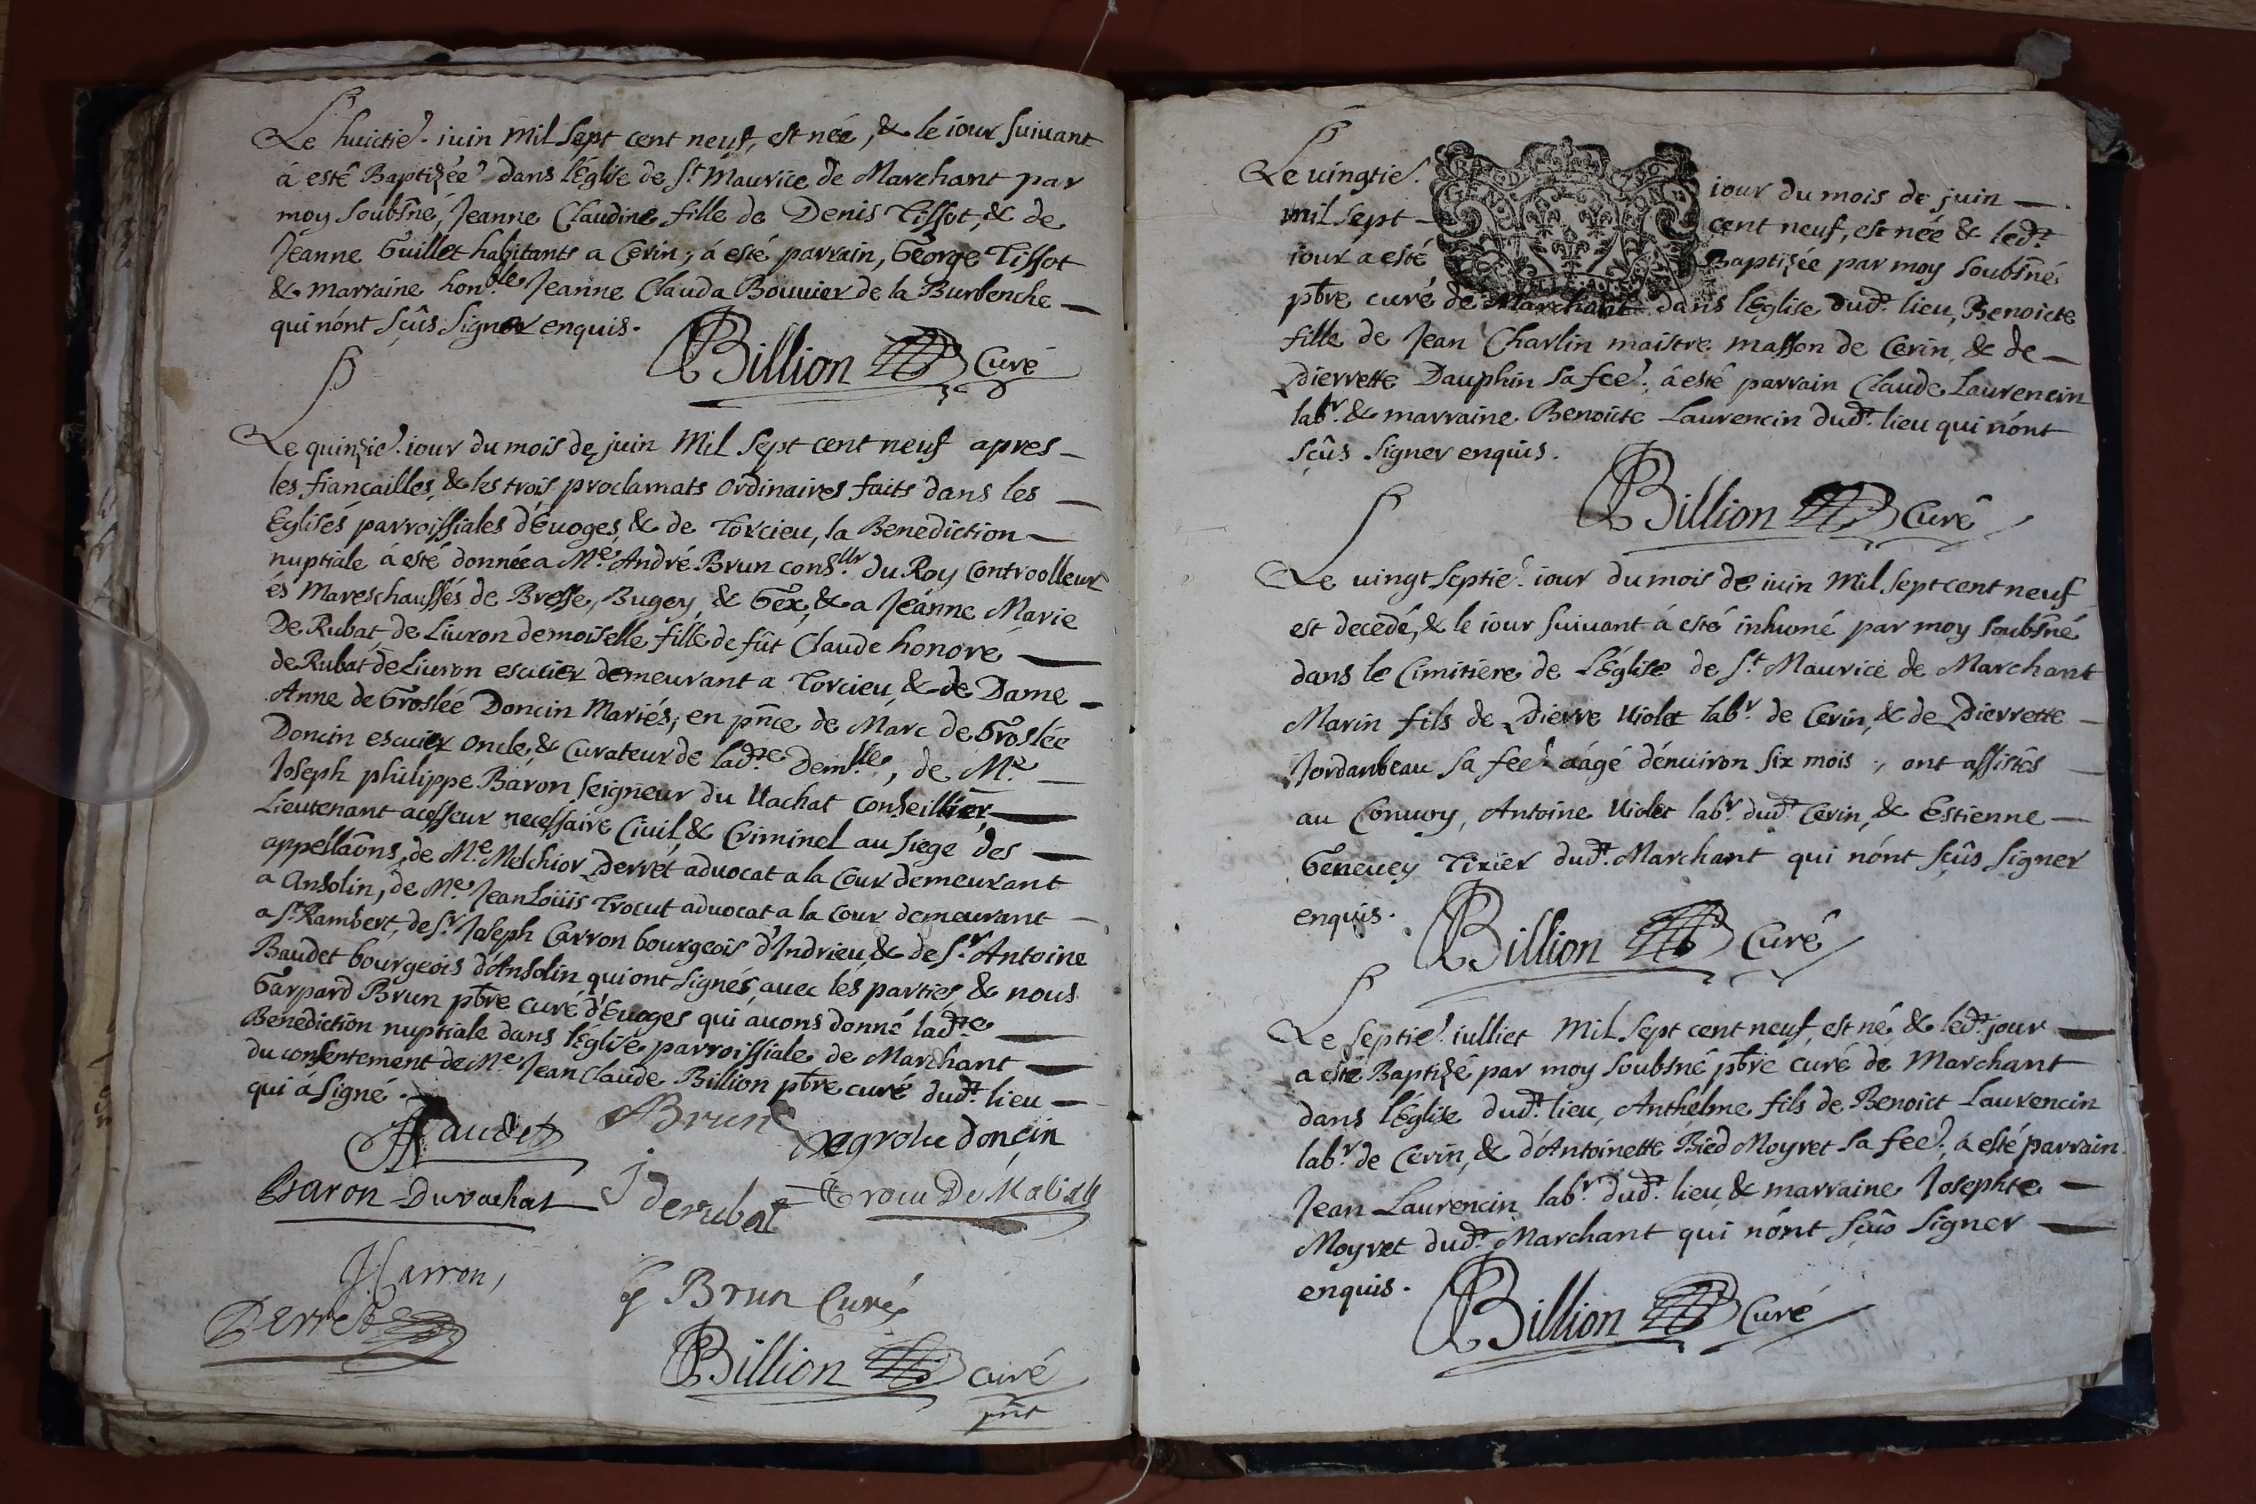 Le huictie. iuin mil sept cent neuf, est née, & le iour suiuant
à esté Baptizée dans l'Église de St Maurice de Marchant par
moy soubsné, Jeanne Claudine fille de Denis Tissot, & de
Jeanne Guillet habitants a Cerin, à esté parrain, George Tissot
& marraine honble Jeanne Clauda Bouuier de la Burbenche
qui nónt sçûs signer enquis.
Billion Curé
Le quinzie. iour du mois de juin mil sept cent neuf apres
les fiançailles, & les trois proclamats ordinaires faits dans les
Eglises parroissiales d'Euoges, & de Torcieu, la Benediction
nuptiale à esté donnée a Me. André Brun consllr du Roy Controolleur
és Mareschaussés de Bresse, Bugey, & Gex, & a Jeánne Marie
De Rubat de Liuron demoiselle fille de fût Claude honoré
de Rubat de Liuron escuier demeurant a Torcieu, & de Dame
Anne de Groslée Doncin Mariés; en pnce de Marc de Groslée
Doncin escuier oncle, & Curateur de ladte Demlle, de Me
Joseph philippe Baron seigneur du Uachat Conseillier
Lieutenant acesseur necessaire Ciuil, & Criminel au siege des
appellaôns, de Me. Melchior Derret aduocat a la Cour demeurant
a Ansolin, de Me Jean Loüis Trocut aduocat a la Cour demeurant
a St Rambert, de Sr Joseph Carron bourgeois d'Indrieu, & de Sr Antoine
Baudet bourgeois d'Ansolin qui ont signés auec les parties, & nous
Gaspard Brun pbre curé d'Euoges qui auons donné ladte
Benediction nuptiale dans l'Église parroissiale de Marchant
du consentement de Me Jean Claude Billion pbre curé dudt. lieu
qui à signé.
Baudet ABrun Degrolee doncin
Baron Duvachat J derubat
JCarron,
Derret g Brun Curé
Billion curé
pnt
Le uingtie. iour du mois de juin
mil sept cent neuf, est née & ledt
iour a esté Baptizée par moy soubsné
pbre curé de Marchant dans l'Eglise dudt. lieu, Benoicte
fille de Jean Charlin maistre masson de Cerin, & de
Pierrette Dauphin sa fee. à esté parrain Claude Laurencin
labr. & marraine Benoicte Laurencin dudt. lieu qui nónt
sçûs signer enquis.
Billion Curé
Le uingt septie. iour du mois de iuin mil sept cent neuf
est decedé, & le iour suiuant à esté inhumé par moy soubsné
dans le Cimitiere de l'Église de St Maurice de Marchant
Marin fils de Pierre Uiolet labr. de Cerin, & de Pierrette
Jordanbeau sa fee. aágé dénuiron six mois, ont assistés
au Conuoy, Antoine Uiolet labr. dudt Cerin, & Estienne
Geneuey Tixier dudt. Marchant qui nónt sçûs signer
enquis.
Billion Curé
Le septie. iulliet mil sept cent neuf, est né, & ledt. jour
a esté Baptizé par moy soubsné pbre curé de Marchant
dans l'Église dudt. lieu, Anthelme fils de Benoict Laurencin
labr. de Cerin, & d'Antoinette Bied Moyret sa fee., a esté parrain
Jean Laurencin labr. dudt. lieu, & marraine Josephte
Moyret dudt. Marchant qui nónt sçûs signer
enquis.
Billion Curé